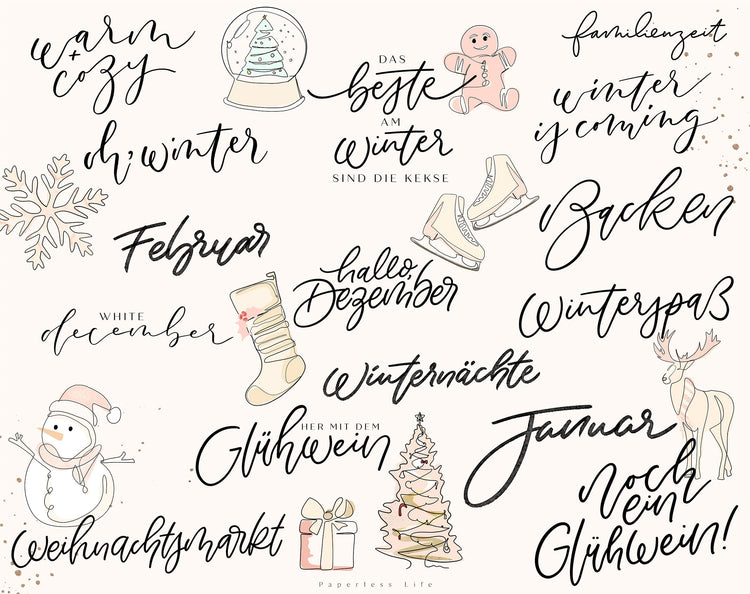 warm
+
cozy
DAS
beste
AM
winter
SIND DIE KEKSE
familienzeit
winter
is coming
oh, winter
Backen
Februar
hallo,
Dezember
WHITE
december
Winterspaß
Winternächte
HER MIT DEM
Glühwein
Januar
noch
ein
Glühwein!
Weihnachtsmarkt
Paperless Life